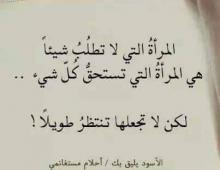 المرأةُ التي لا تطلُبُ شيئاً
هي المرأةُ التي تستحقُّ كُلّ شيء ..
لكن لا تجعلها تنتظرُ طويلاً !
الأسود يليق بك / أحلام مستغانمي